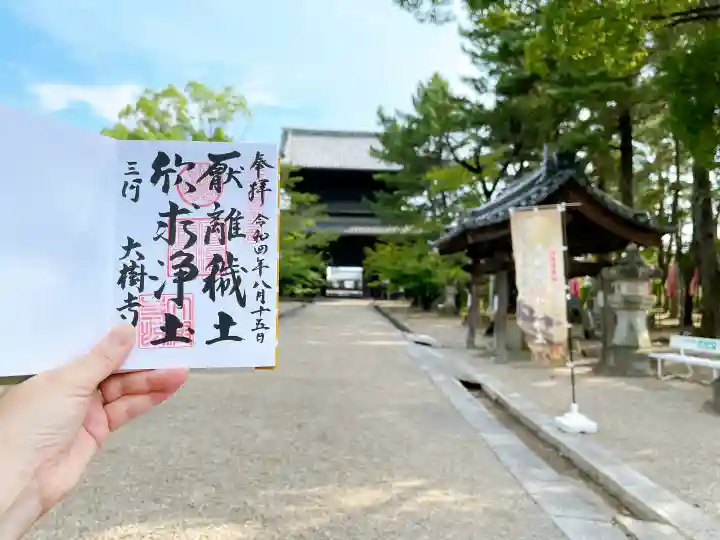 参拝 令和四年八月十五日
厭離穢土
欣求浄土
三河 大樹寺